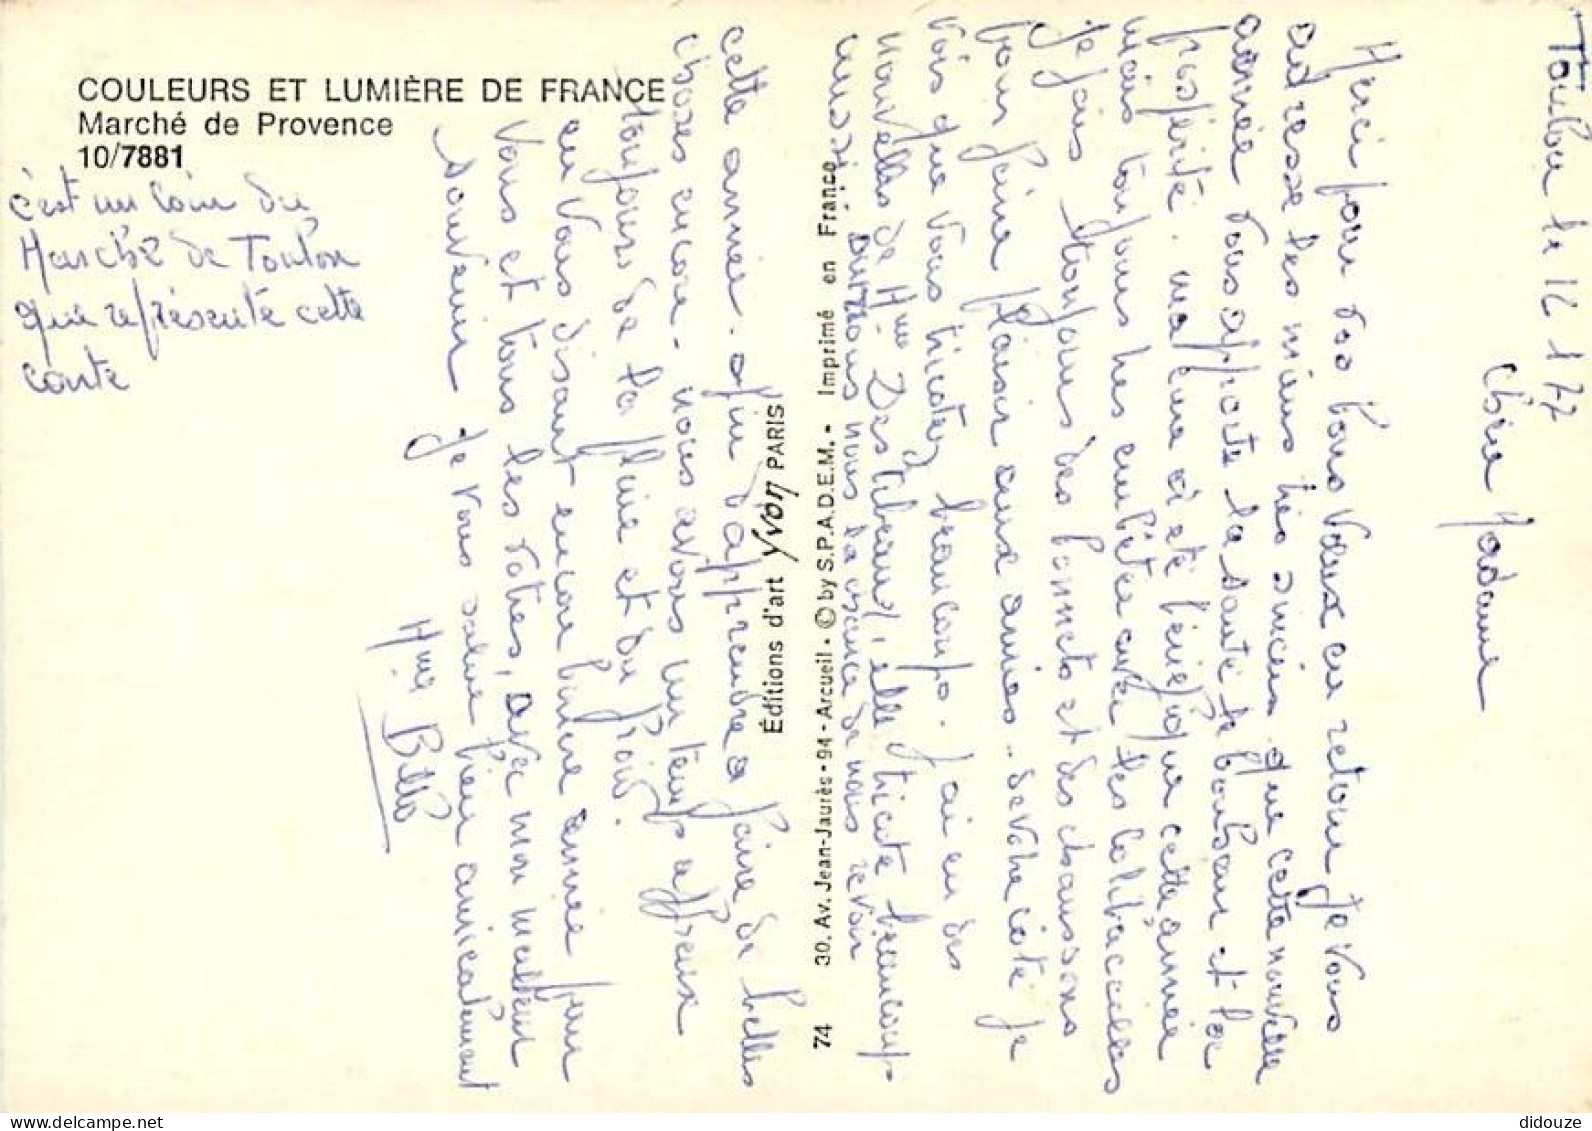 COULEURS ET LUMIÈRE DE FRANCE
Marché de Provence
10/7881
c'est un coin du
Marché de Toulon
que représente cette
carte
Toulon le 12 1 77
Chère Madame
Merci pour vos bons vœux en retour je vous
adresse les miens très sincères que cette nouvelle
année vous apporte la santé le bonheur et la
prospérité. ma fine a été
mais toujours très embêtée avec les colibacilles
je fais toujours des bonnets et des chaussons
pour faire plaisir aux amies - de votre côté je
vois que vous tricotez beaucoup. j'ai eu des
nouvelles de Mme elle tricote beaucoup
aussi nous la de nous revoir
cette année. afin d'apprendre a faire de belles
choses encore - nous avons un temps affreux
toujours de la pluie et du froid.
en vous disant encore bonne année pour
vous et tous les votres, avec mon meilleur
souvenir je vous salue bien amicalement
Mme
Éditions d'art Yvon PARIS
74 30. Av. Jean-Jaurès • 94 - Arcueil • © by S.P.A.D.E.M. • Imprimé en France
didouze